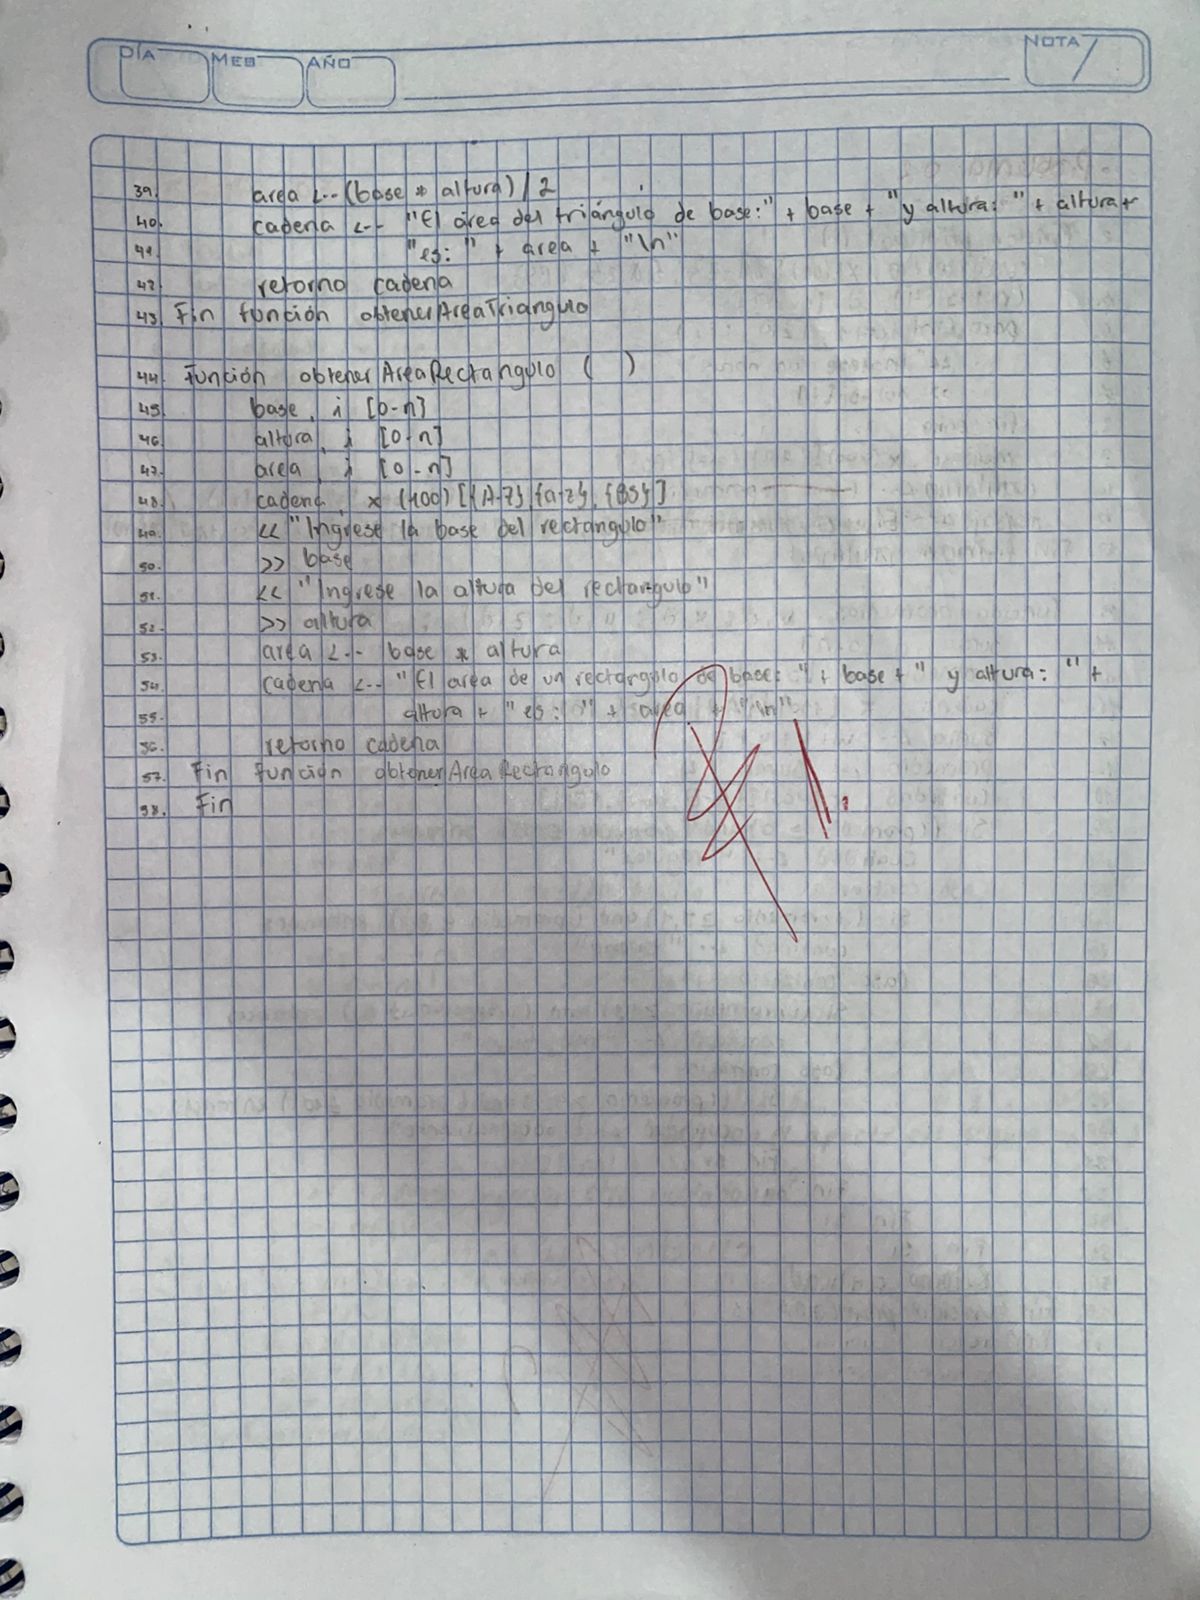 DÍA MES AÑO NOTA
39. area <-- (base * altura) / 2
40. cadena <-- "El área del triángulo de base:" + base + "y altura: " + altura +
41. "es: " + area + "\n"
42. retorno cadena
43. Fin función obtenerAreaTriangulo
44. Función obtenerAreaRectangulo ( )
45. base, i [0-n]
46. altura, i [0-n]
47. area, i [0-n]
48. cadena, x (100) [{A-Z},{a-z},{BS}]
49. << "Ingrese la base del rectangulo"
50. >> base
51. << "Ingrese la altura del rectangulo"
52. >> altura
53. area <-- base * altura
54. cadena <-- "El area de un rectangulo de base: " + base + " y altura: " +
55. altura + " es: " + area + "\n"
56. retorno cadena
57. Fin función obtenerAreaRectangulo
58. Fin